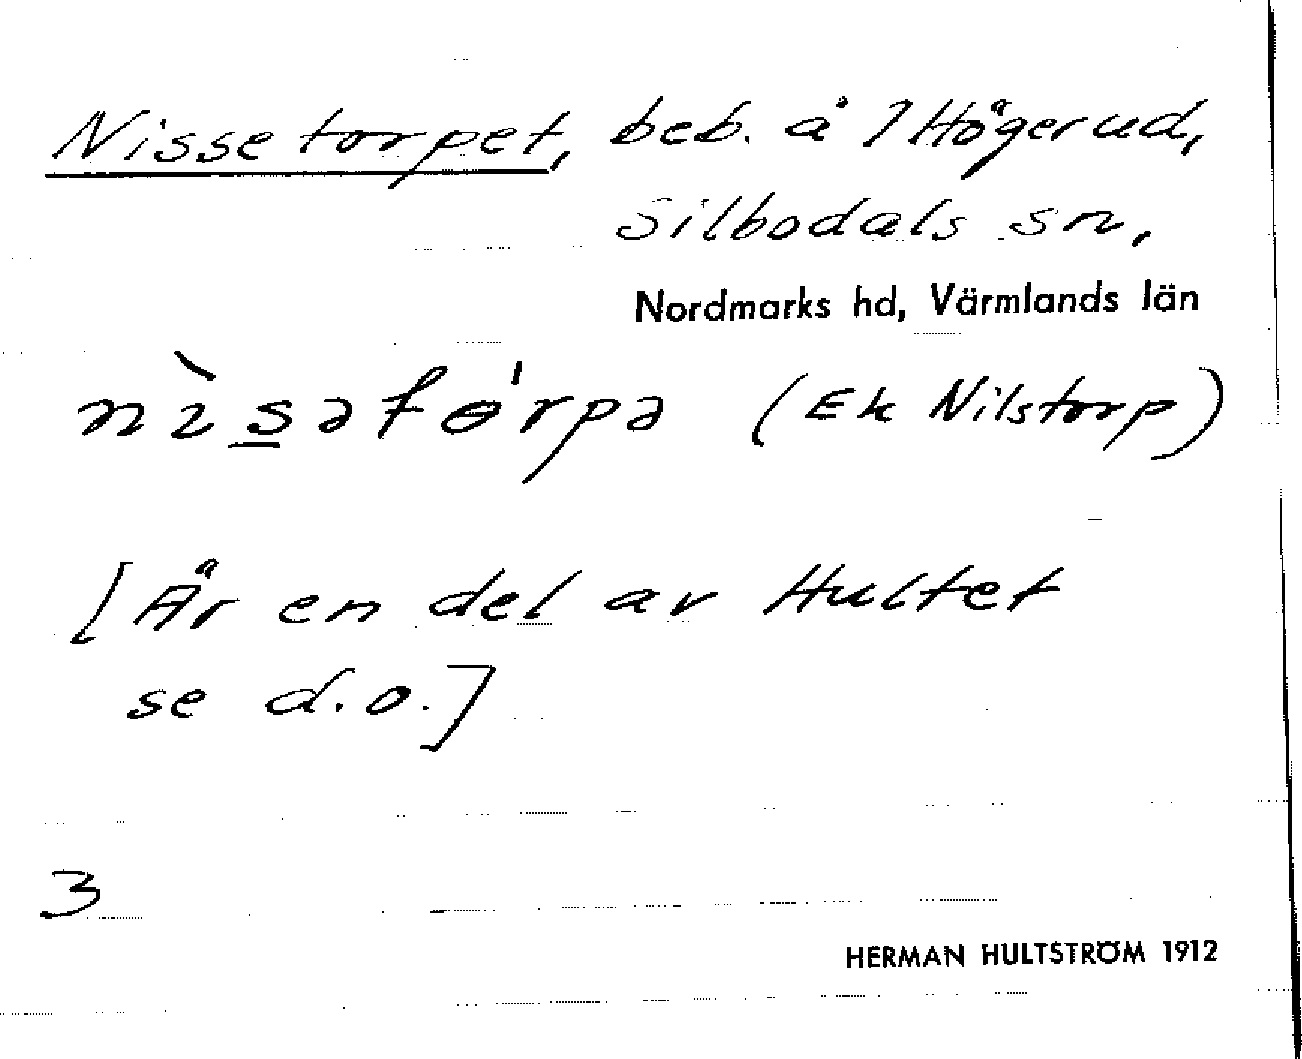 Nissetorpet, beb. å 1 Högerud,
Silbodals sn,
Nordmarks hd, Värmlands län
nìsətórpə (Ek Nilstorp)
[Är en del av Hultet
se d.o.]
3
HERMAN HULTSTRÖM 1912